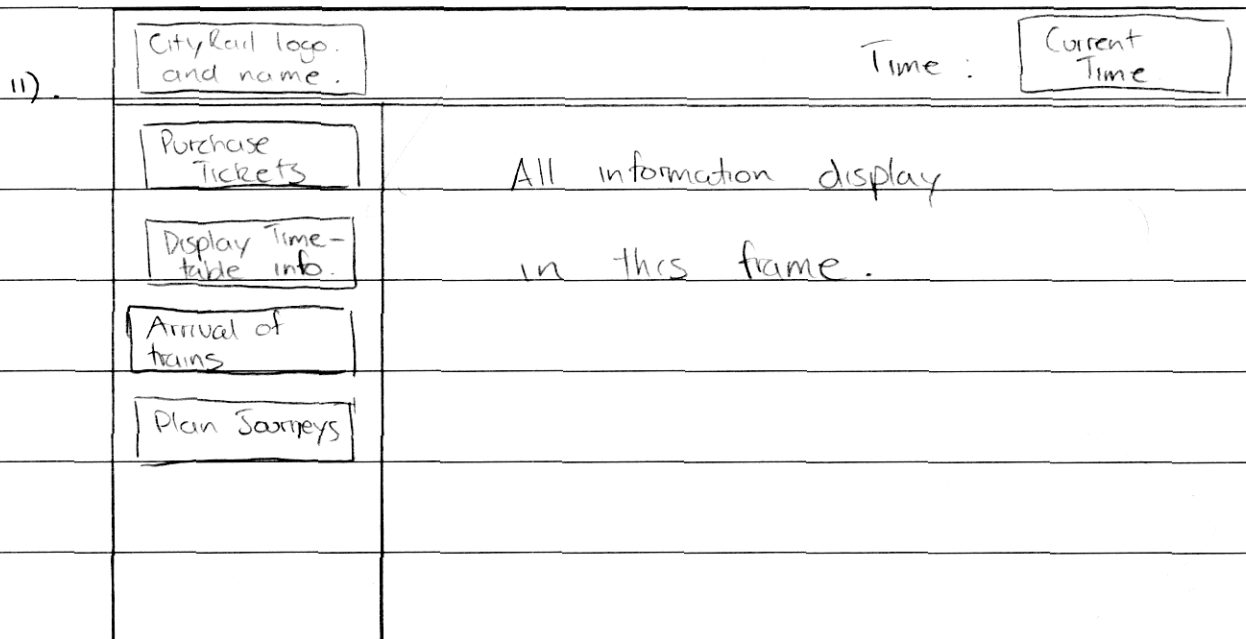 11).
CityRail logo.
and name.
Time :
Current
Time
Purchase
Tickets
Display Time-
table info.
Arrival of
trains
Plan Journeys
All information display
in this frame.